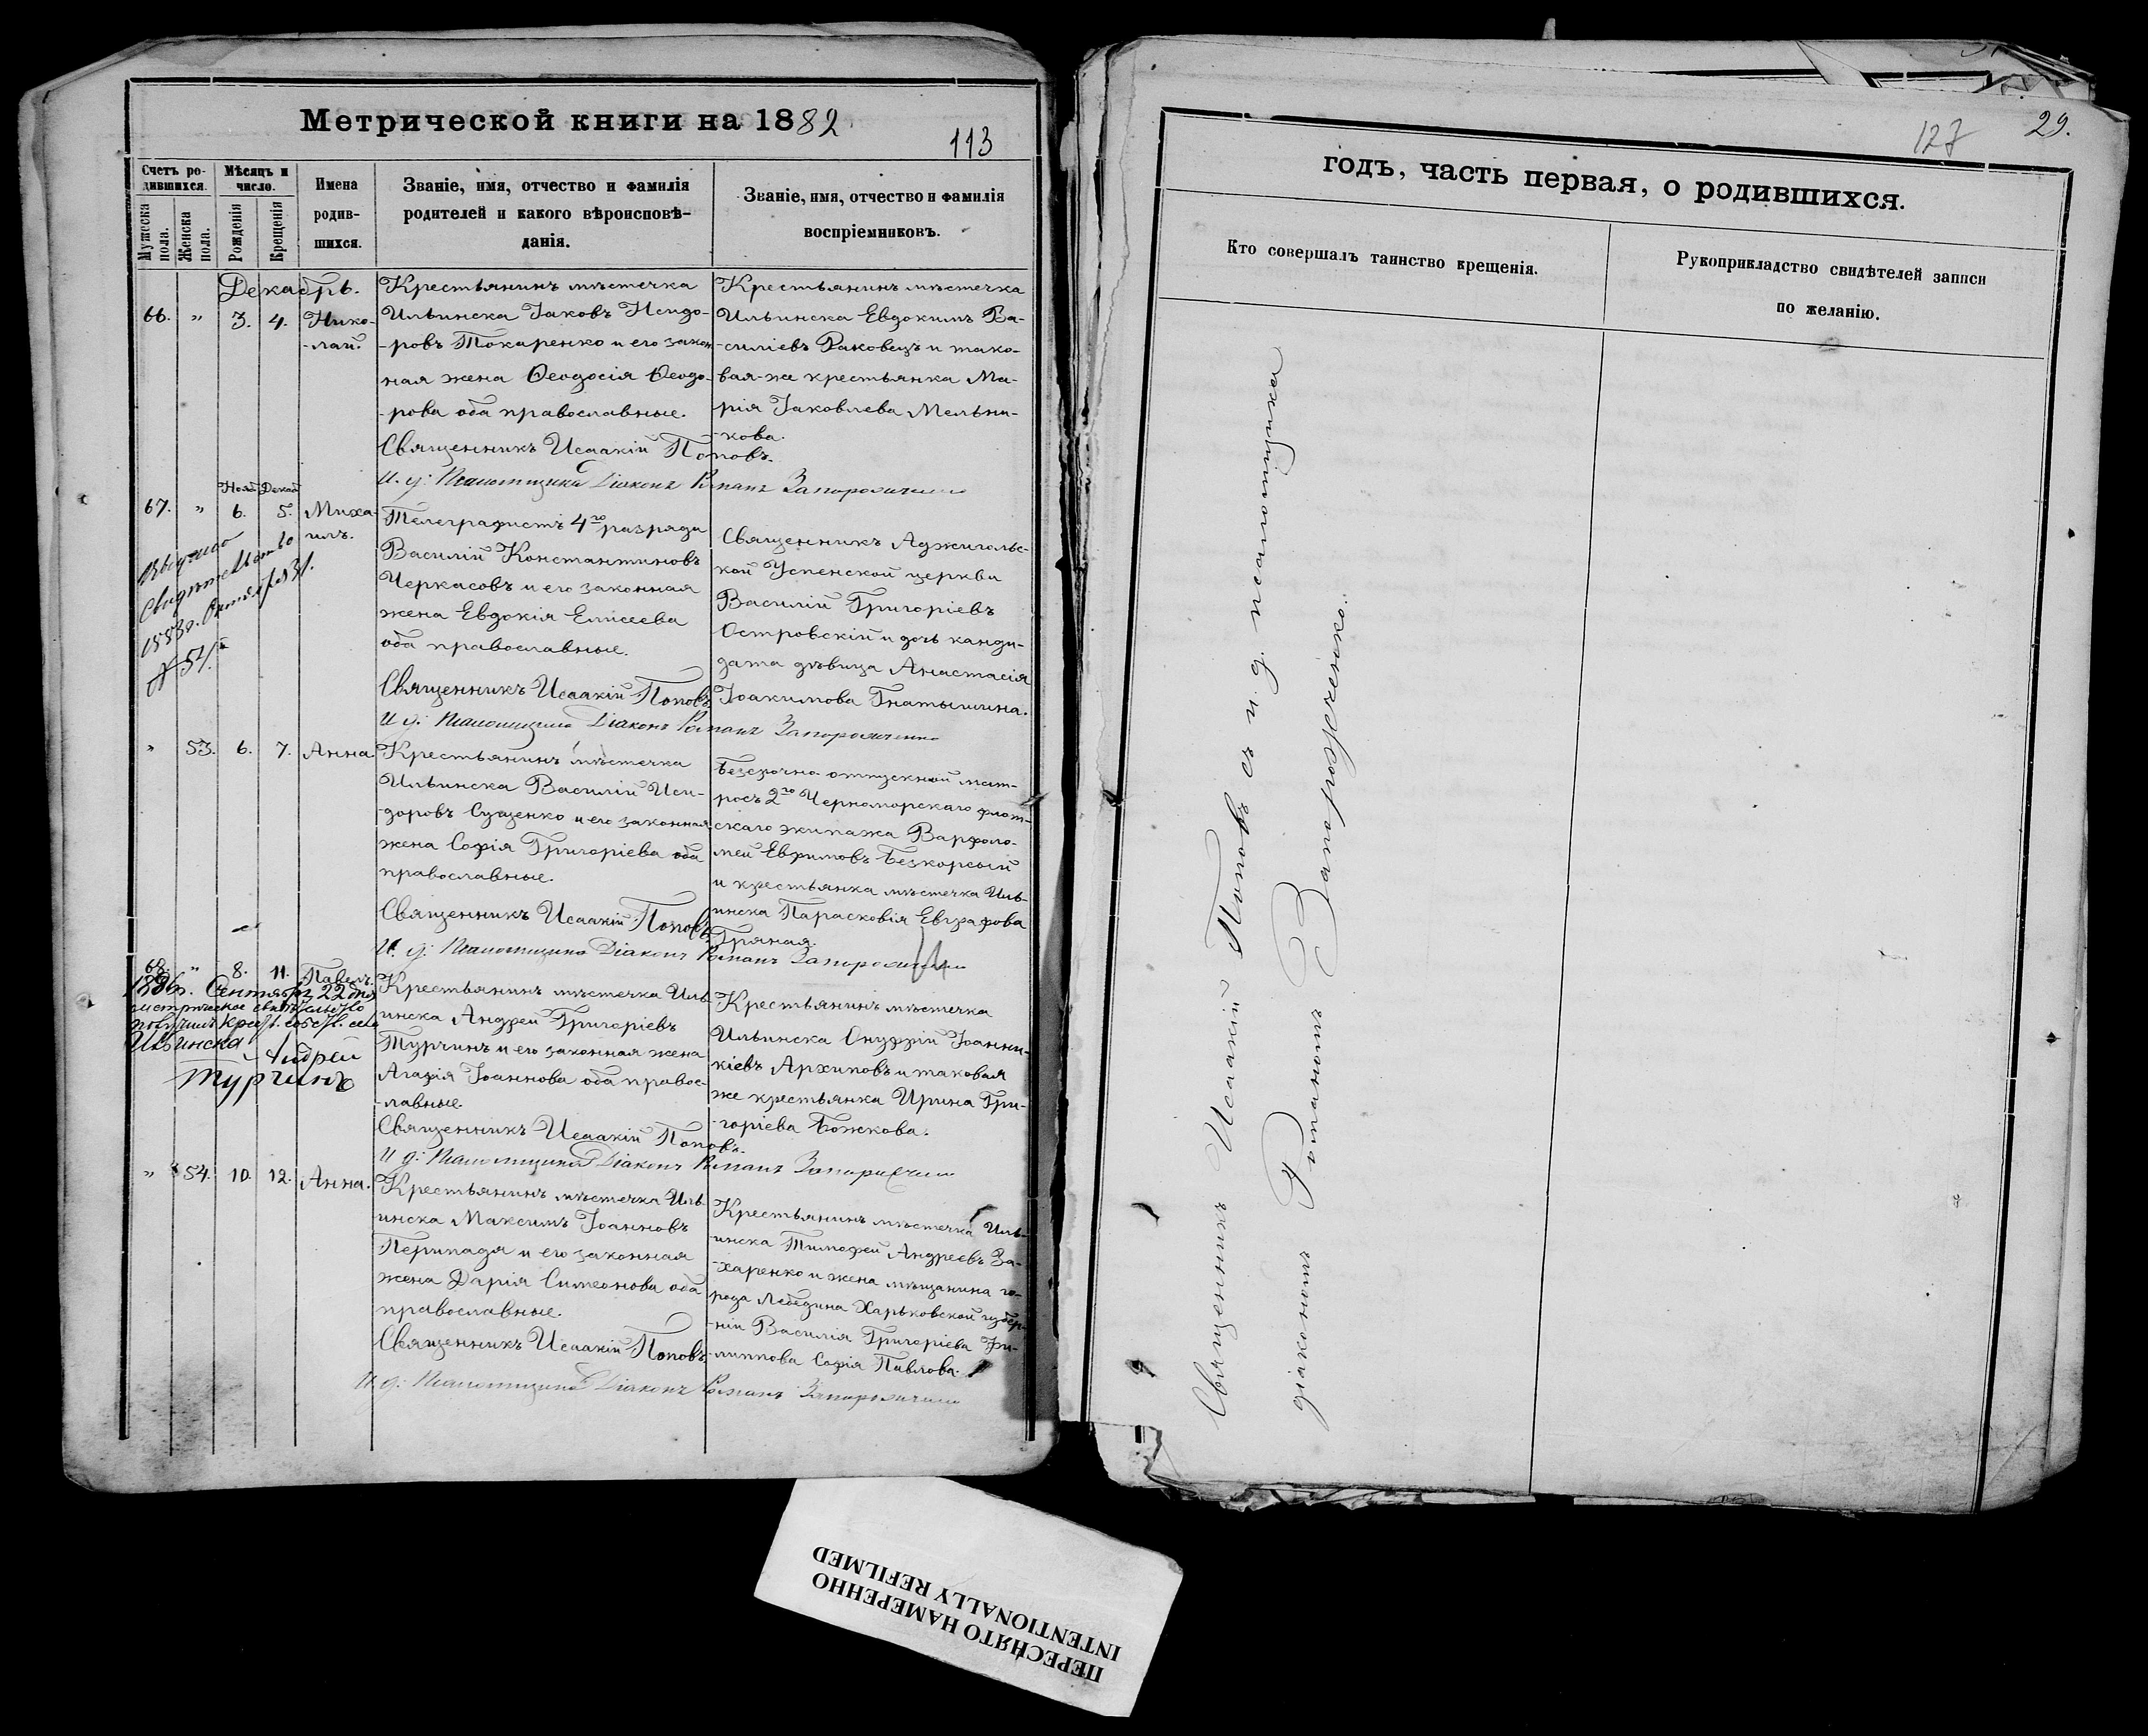 Метрической книги на 1882
113
Счетъ ро-
дившихся.
Мѣсяцъ и
число.
Мужеска
пола.
Женска
пола.
Рожденія
Крещенія
Имена
родив-
шихся.
Званіе, имя, отчество и фамилія
родителей и какого вѣроисповѣ-
данія.
Званіе, имя, отчество и фамилія
воспріемниковъ.
Декабрь.
66. „ 3. 4. Нико-
-лай.
Крестьянинъ мѣстечка
Ильинска Іаковъ Исидо-
-ровъ Токаренко и его закон-
ная жена Ѳеодосія Ѳеодо-
-рова оба православные.
Священникъ Исаакій Поповъ.
И. д: Псаломщика Діаконъ Романъ Запорожченко
Крестьянинъ мѣстечка
Ильинска Евдокимъ Ва-
-силіевъ Раковецъ и тако-
вая-же крестьянка Ма-
рія Іаковлева Мельни-
-кова.
Нояб. Декаб.
67. „ 6. 5. Миха-
илъ.
Выдано
свидѣтельство
1883г. Октября 31.
№ 51.
Телеграфистъ 4го разряда
Василій Константиновъ
Черкасовъ и его законная
жена Евдокія Елисеева
оба православные.
Священникъ Исаакій Поповъ.
И д: Псаломщика Діаконъ Романъ Запорожченко
Священникъ Аджигольс-
кой Успенской церкви
Василій Григоріевъ
Островскій и дочь канди-
дата дѣвица Анастасія
Іоакимова Гнатышина.
„ 53. 6. 7. Анна
Крестьянинъ мѣстечка
Ильинска Василій Иси-
-доровъ Сущенко и его законная
жена Софія Григоріева оба
православные.
Священникъ Исаакій Поповъ.
И. д: Псаломщика Діаконъ Романъ Запорожченко
Безсрочно отпускной мат-
росъ 2го Черноморскаго флот-
скаго экипажа Варфоло-
мей Евфимовъ Безкорсый
и крестьянка мѣстечка Иль-
инска Парасковія Евграфова
Гряная.
68. „ 8. 11. Павелъ.
1896г. Сентября 22 дня
метрическое свидѣтельство
получилъ крест. собст. села
Ильинска Андрей
Турчинъ
Крестьянинъ мѣстечка Иль-
инска Андрей Григоріевъ
Турчинъ и его законная жена
Агафія Іоаннова оба правос-
-лавные.
Священникъ Исаакій Поповъ.
И д: Псаломщика Діаконъ Романъ Запорожченко
Крестьянинъ мѣстечка
Ильинска Онуфрій Іоанни-
кіевъ Архиповъ и таковая
же крестьянка Ирина Гри-
-горіева Божкова.
„ 54. 10. 12. Анна.
Крестьянинъ мѣстечка Иль-
инска Максимъ Іоанновъ
Перипадя и его законная
жена Дарія Симеонова оба
православные.
Священникъ Исаакій Поповъ.
И д: Псаломщика Діаконъ Романъ Запорожченко
Крестьянинъ мѣстечка Иль-
инска Тимофей Андреевъ За-
-харенко и жена мѣщанина го-
рода Лебедина Харьковской губер-
-ніи Василія Григоріева Фи-
-липпова Софія Павлова.
127
29.
годъ, часть первая, о родившихся.
Кто совершалъ таинство крещенія.
Рукоприкладство свидѣтелей записи
по желанію.
Священникъ Исаакій Поповъ съ и. д. псаломщика
діакономъ Романомъ Запорожченко.
ПЕРЕСНЯТО НАМЕРЕННО
INTENTIONALLY REFILMED